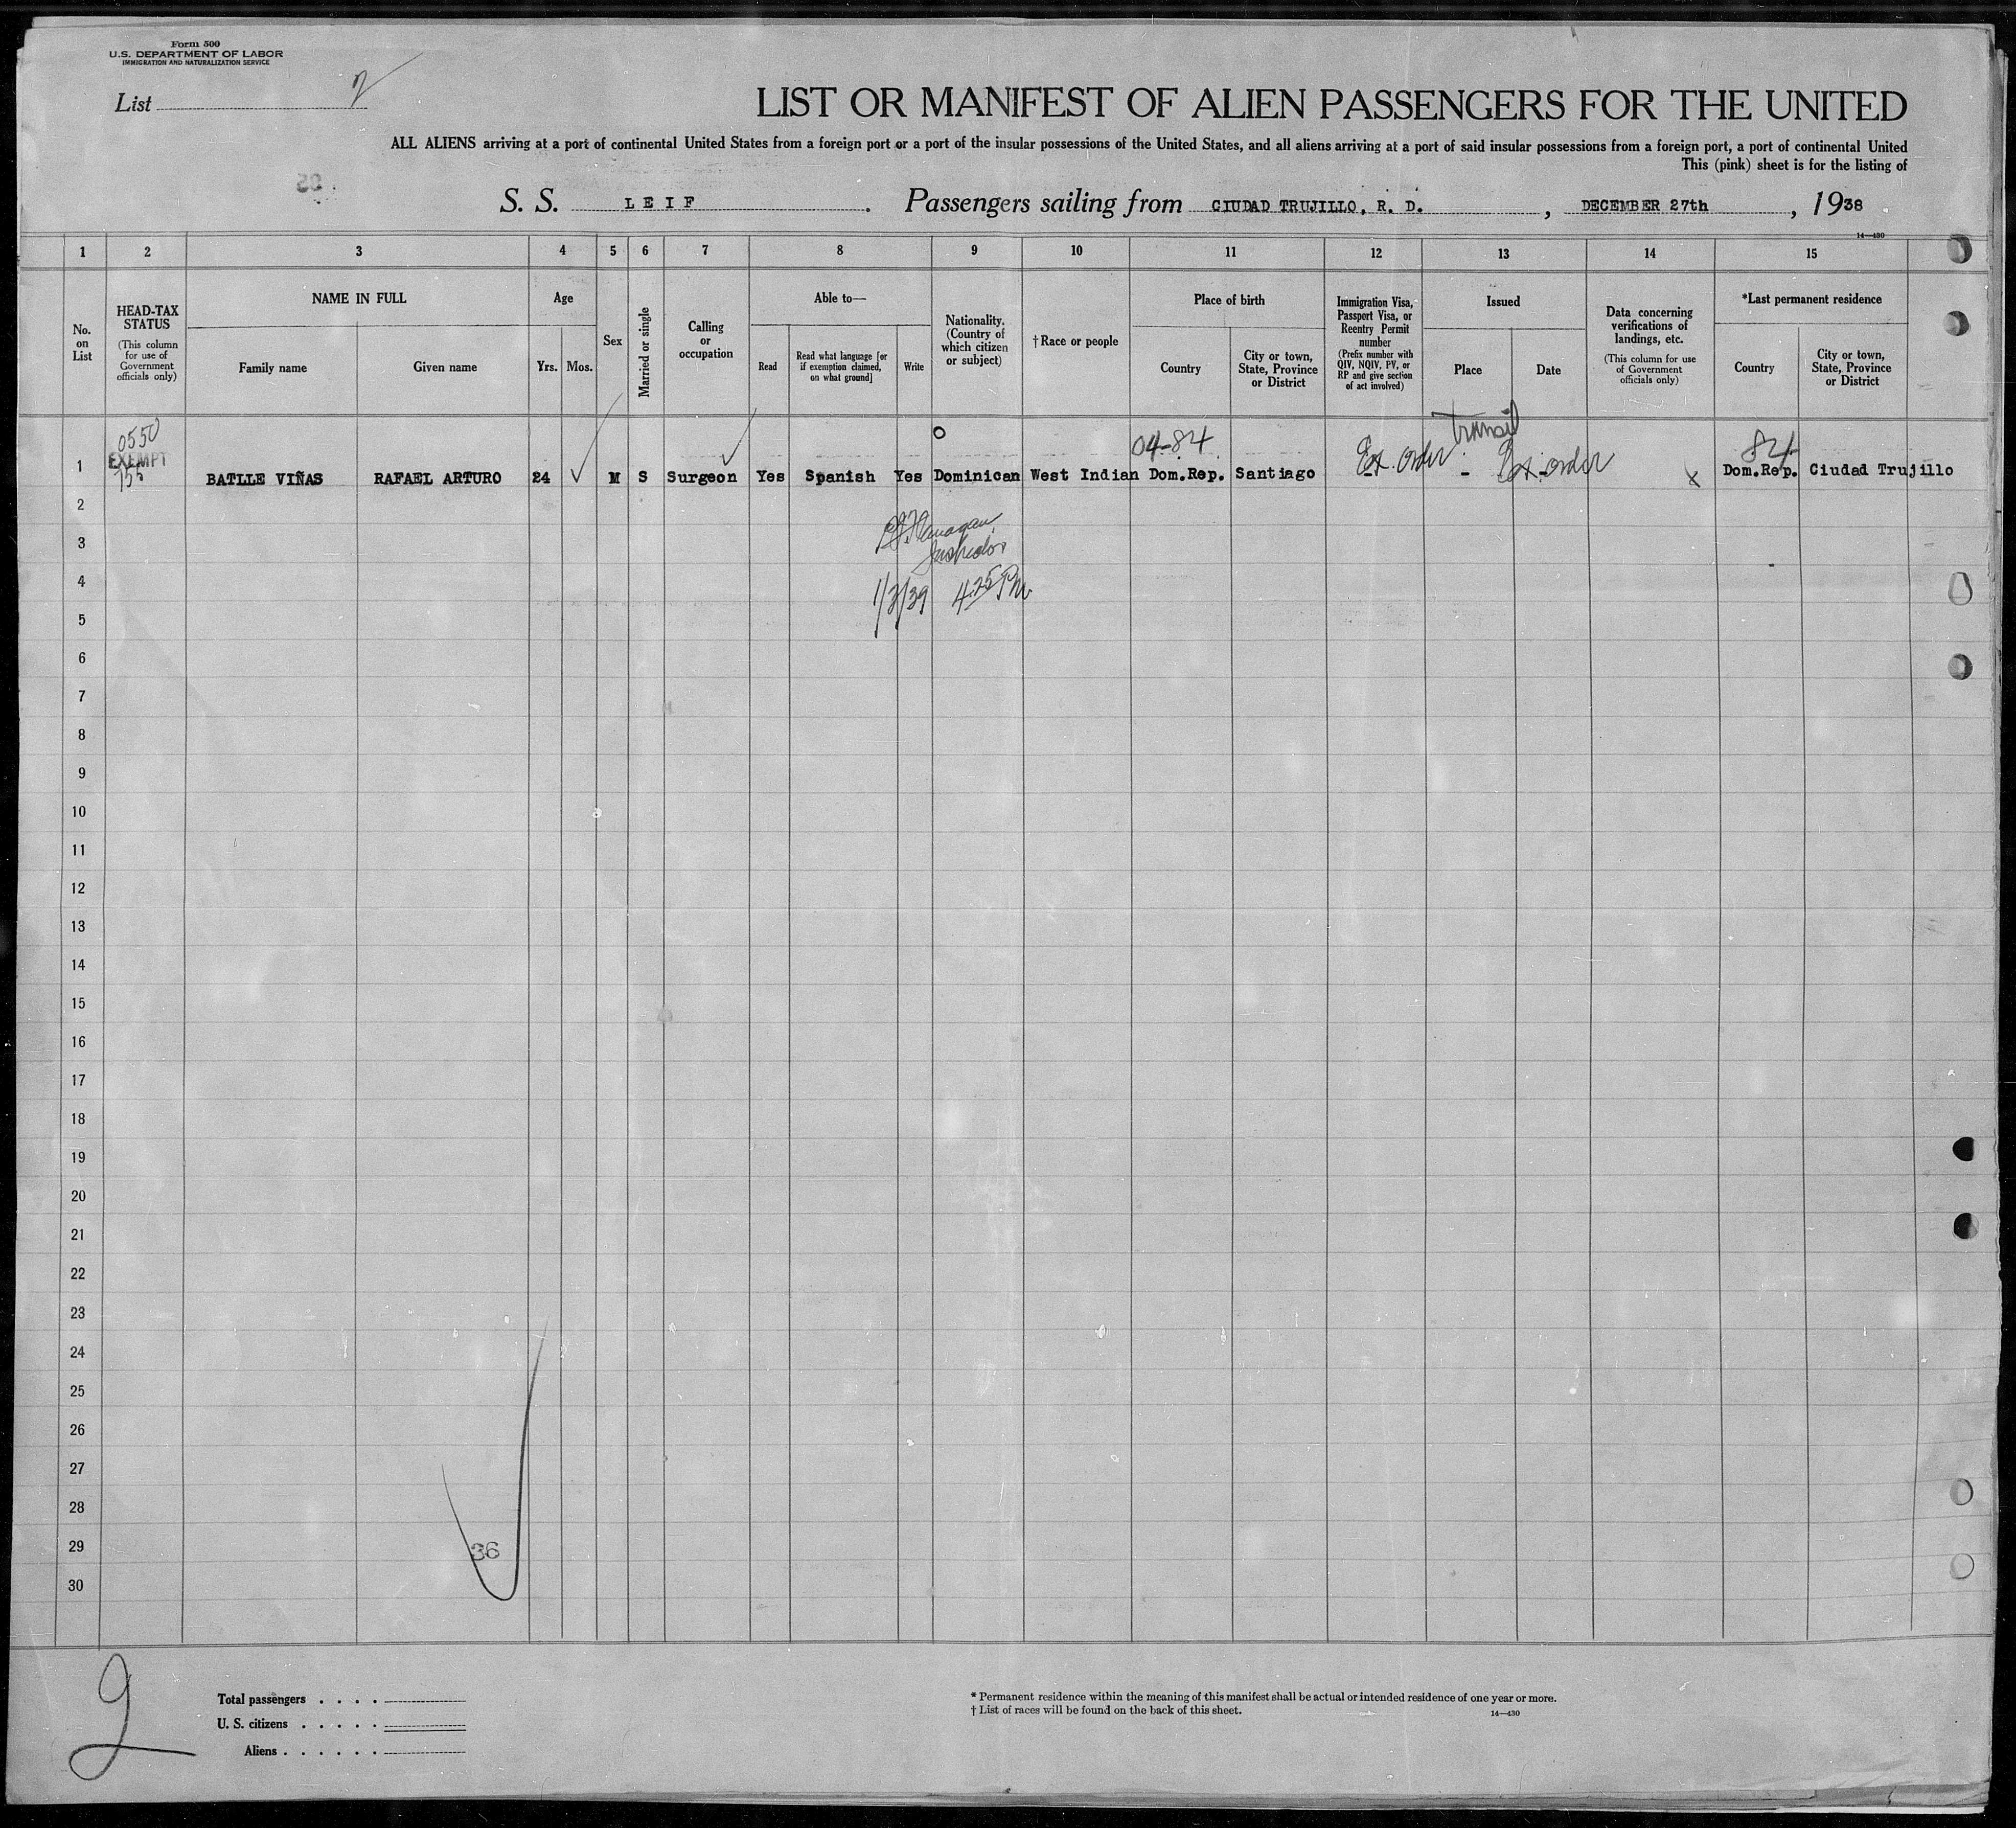 Form 500
U.S. DEPARTMENT OF LABOR
IMMIGRATION AND NATURALIZATION SERVICE
List 2
LIST OR MANIFEST OF ALIEN PASSENGERS FOR THE UNITED
ALL ALIENS arriving at a port of continental United States from a foreign port or a port of the insular possessions of the United States, and all aliens arriving at a port of said insular possessions from a foreign port, a port of continental United
This (pink) sheet is for the listing of
S. S. LEIF. Passengers sailing from CIUDAD TRUJILLO, R. D., DECEMBER 27th, 1938
14—430
1 2 3 4 5 6 7 8 9 10 11 12 13 14 15
No. on List
HEAD-TAX STATUS
(This column for use of Government officials only)
NAME IN FULL
Family name
Given name
Age
Yrs.
Mos.
Sex
Married or single
Calling or occupation
Able to—
Read
Read what language [or if exemption claimed, on what ground]
Write
Nationality. (Country of which citizen or subject)
†Race or people
Place of birth
Country
City or town, State, Province or District
Immigration Visa, Passport Visa, or Reentry Permit number
(Prefix number with QIV, NQIV, PV, or RP and give section of act involved)
Issued
Place
Date
Data concerning verifications of landings, etc.
(This column for use of Government officials only)
*Last permanent residence
Country
City or town, State, Province or District
transit
0550
04-84
84
EXEMPT
155
1 BATLLE VIÑAS RAFAEL ARTURO 24 M S Surgeon Yes Spanish Yes Dominican West Indian Dom.Rep. Santiago Ex. order - Ex. order x Dom.Rep. Ciudad Trujillo
2
Flanagan,
3
Inspector
4
1/3/39 4:25 PM
5
6
7
8
9
10
11
12
13
14
15
16
17
18
19
20
21
22
23
24
25
26
27
28
29
36
30
2
Total passengers
U. S. citizens
Aliens
* Permanent residence within the meaning of this manifest shall be actual or intended residence of one year or more.
† List of races will be found on the back of this sheet.
14—430